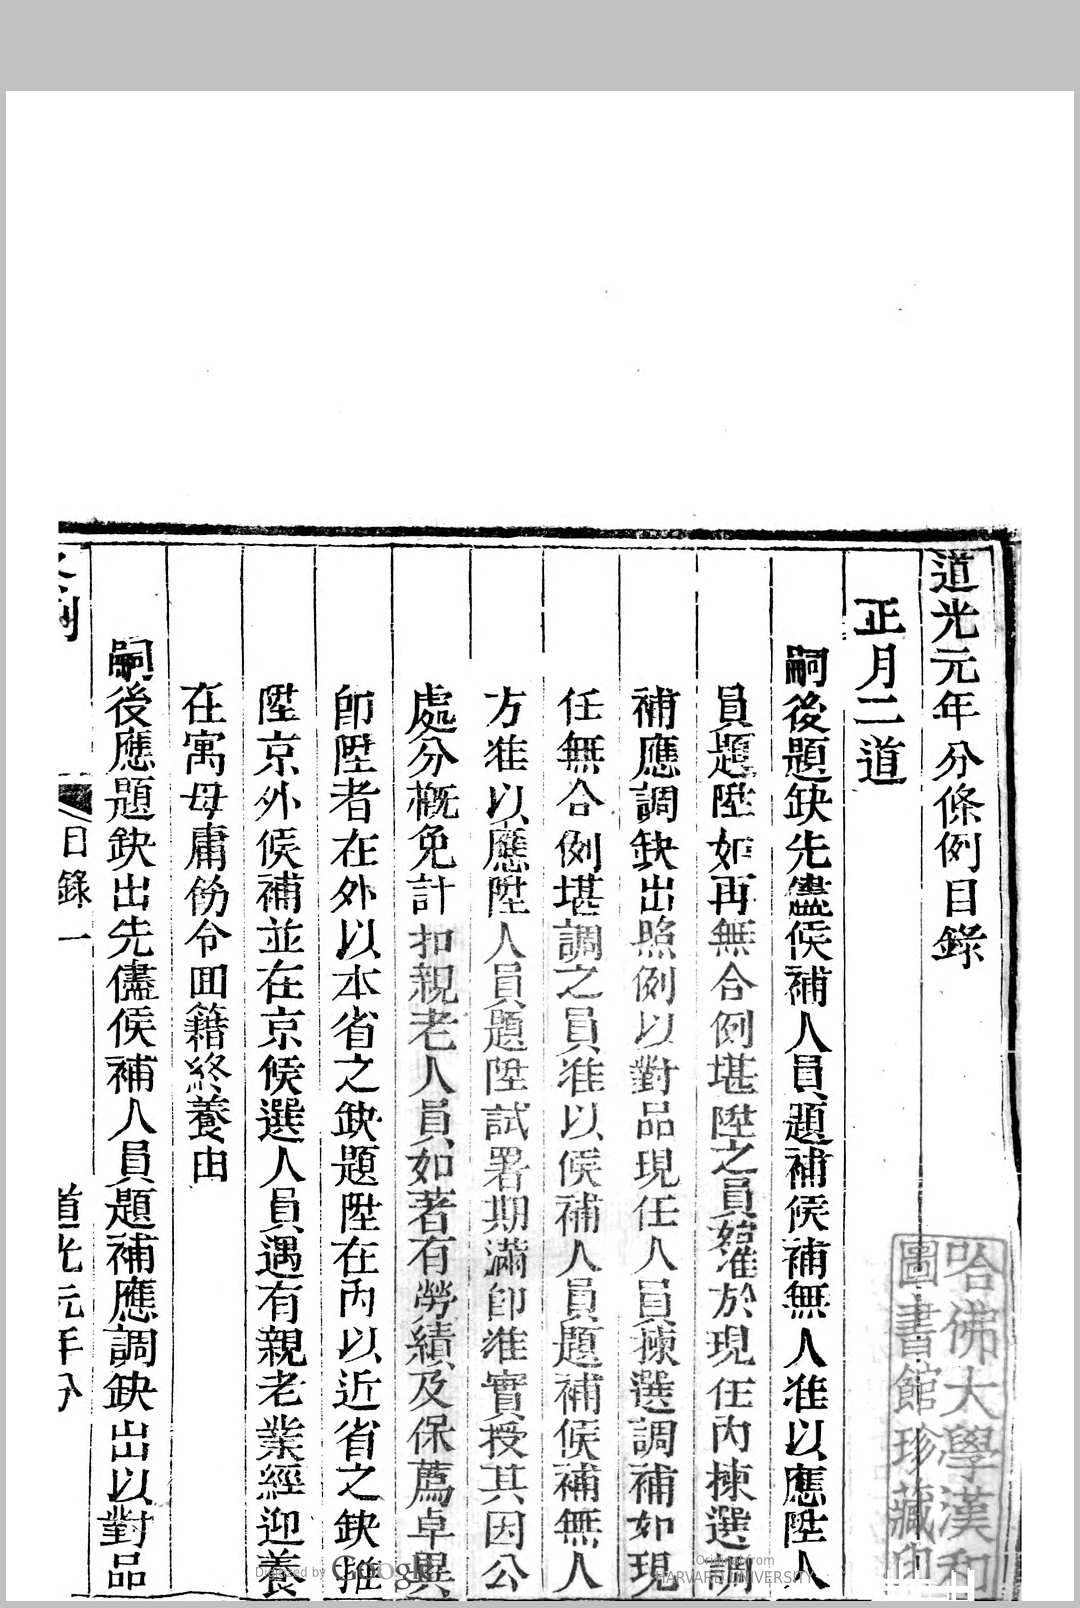 道光元年分條例目錄
正月二道
嗣後題缺先儘候補人員題補候補無人准以應陞人
員題陞如再無合例堪陞之員准於現任內揀選調
補應調缺出照例以對品現任人員揀選調補如現
任無合例堪調之員准以候補人員題補候補無人
方准以應陞人員題陞試署期滿卽准實授其因公
處分概免計扣親老人員如著有勞績及保薦卓異
卽陞者在外以本省之缺題陞在內以近省之缺推
陞京外候補並在京候選人員遇有親老業經迎養
在寓毋庸飭令囬籍終養由
嗣後應題缺出先儘候補人員題補應調缺出以對品
目錄一
道光元年分
哈佛大學漢和
圖書館珍藏印
Digitized by Google
Original from
HARVARD UNIVERSITY